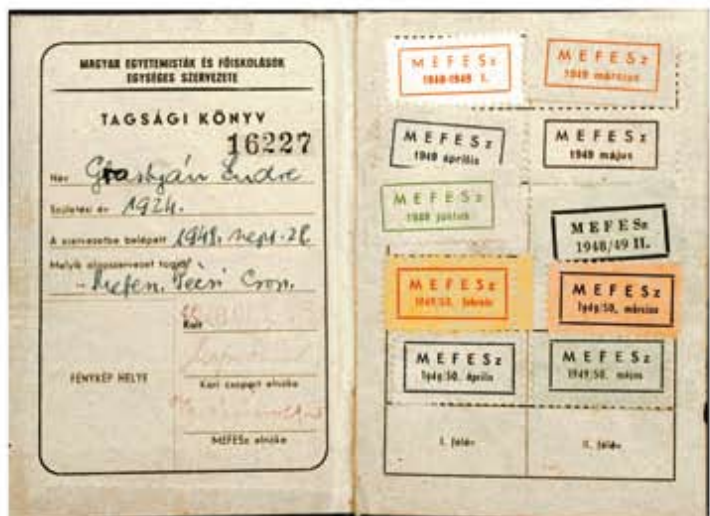 MAGYAR EGYETEMISTÁK ÉS FŐISKOLÁSOK
EGYSÉGES SZERVEZETE
TAGSÁGI KÖNYV
16227
Név Grastyán Endre
Születési év 1924.
A szervezetbe belépett 1948. sept. 28.
Melyik alapszervezet tagja
Mefesz. Pécsi Csop.
Kelt
FÉNYKÉP HELYE
Kari csoport elnöke
MEFESz elnöke
MEFESz
1948-1949 I.
MEFESz
1949 március
MEFESz
1949 április
MEFESz
1949 május
MEFESz
1949 június
MEFESz
1948/49 II.
MEFESz
1949/50. február
MEFESz
1949/50. március
MEFESz
1949/50. április
MEFESz
1949/50. május
I. félév
II. félév